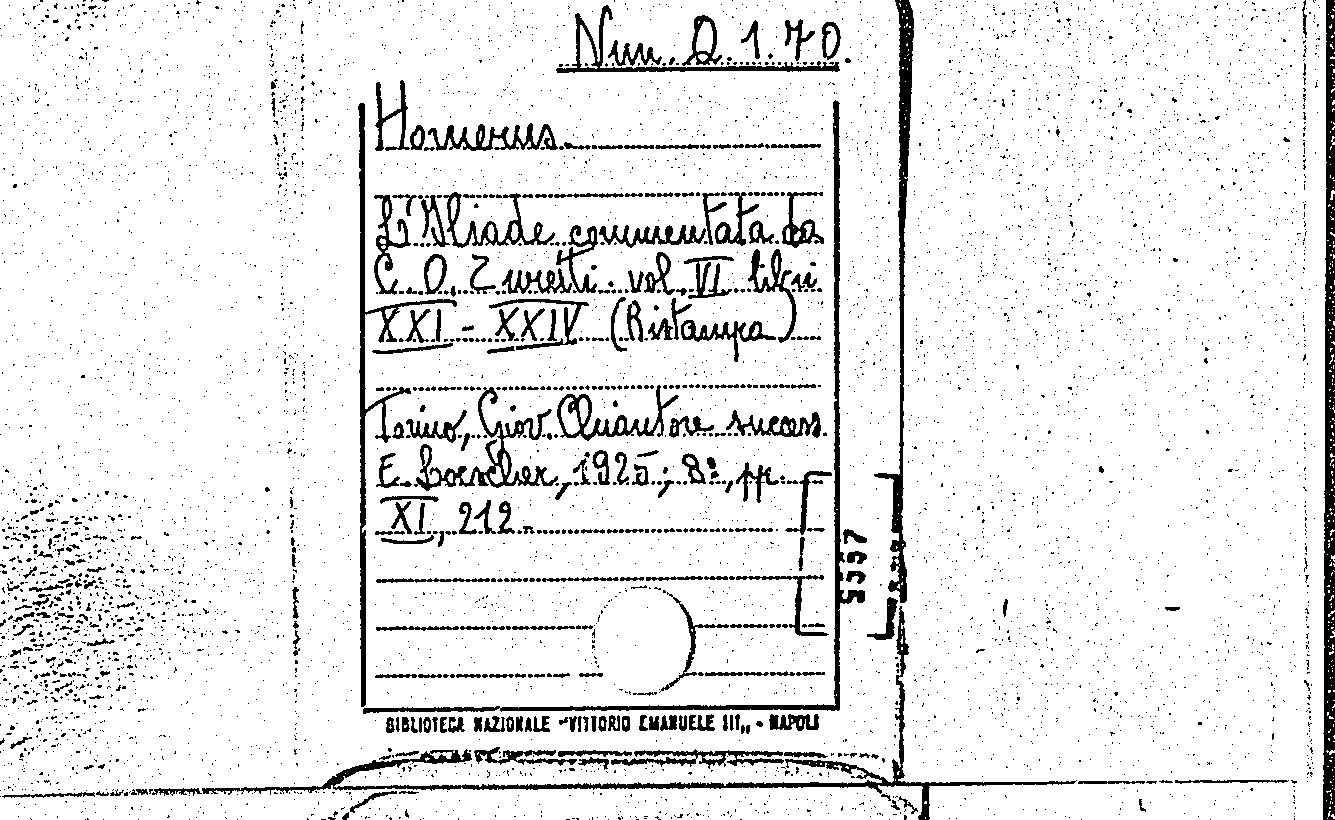 Nun. Q. 1. 70.
Homerus.
L'Iliade commentata da
C. O. Zuretti. vol. VI libri
XXI - XXIV (Ristampa)
Torino, Giov. Chiantore success
E. Loescher, 1925; 8º, pp.
XI, 212.
BIBLIOTECA NAZIONALE "VITTORIO EMANUELE III„ - NAPOLI